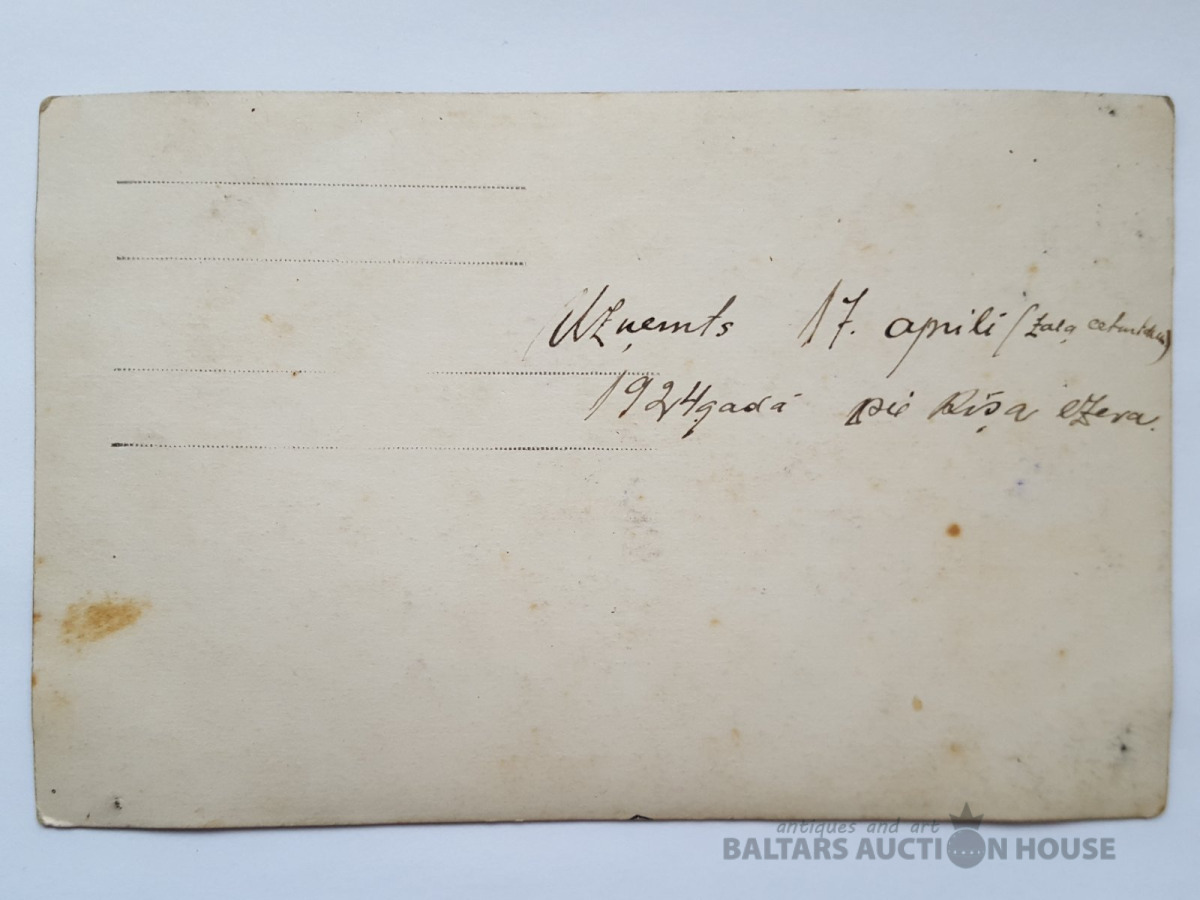 Uzņemts 17. aprilī (zaļa ceturtdien)
1924 gadā pie Ķīša ezera.
antiques and art
BALTARS AUCTION HOUSE